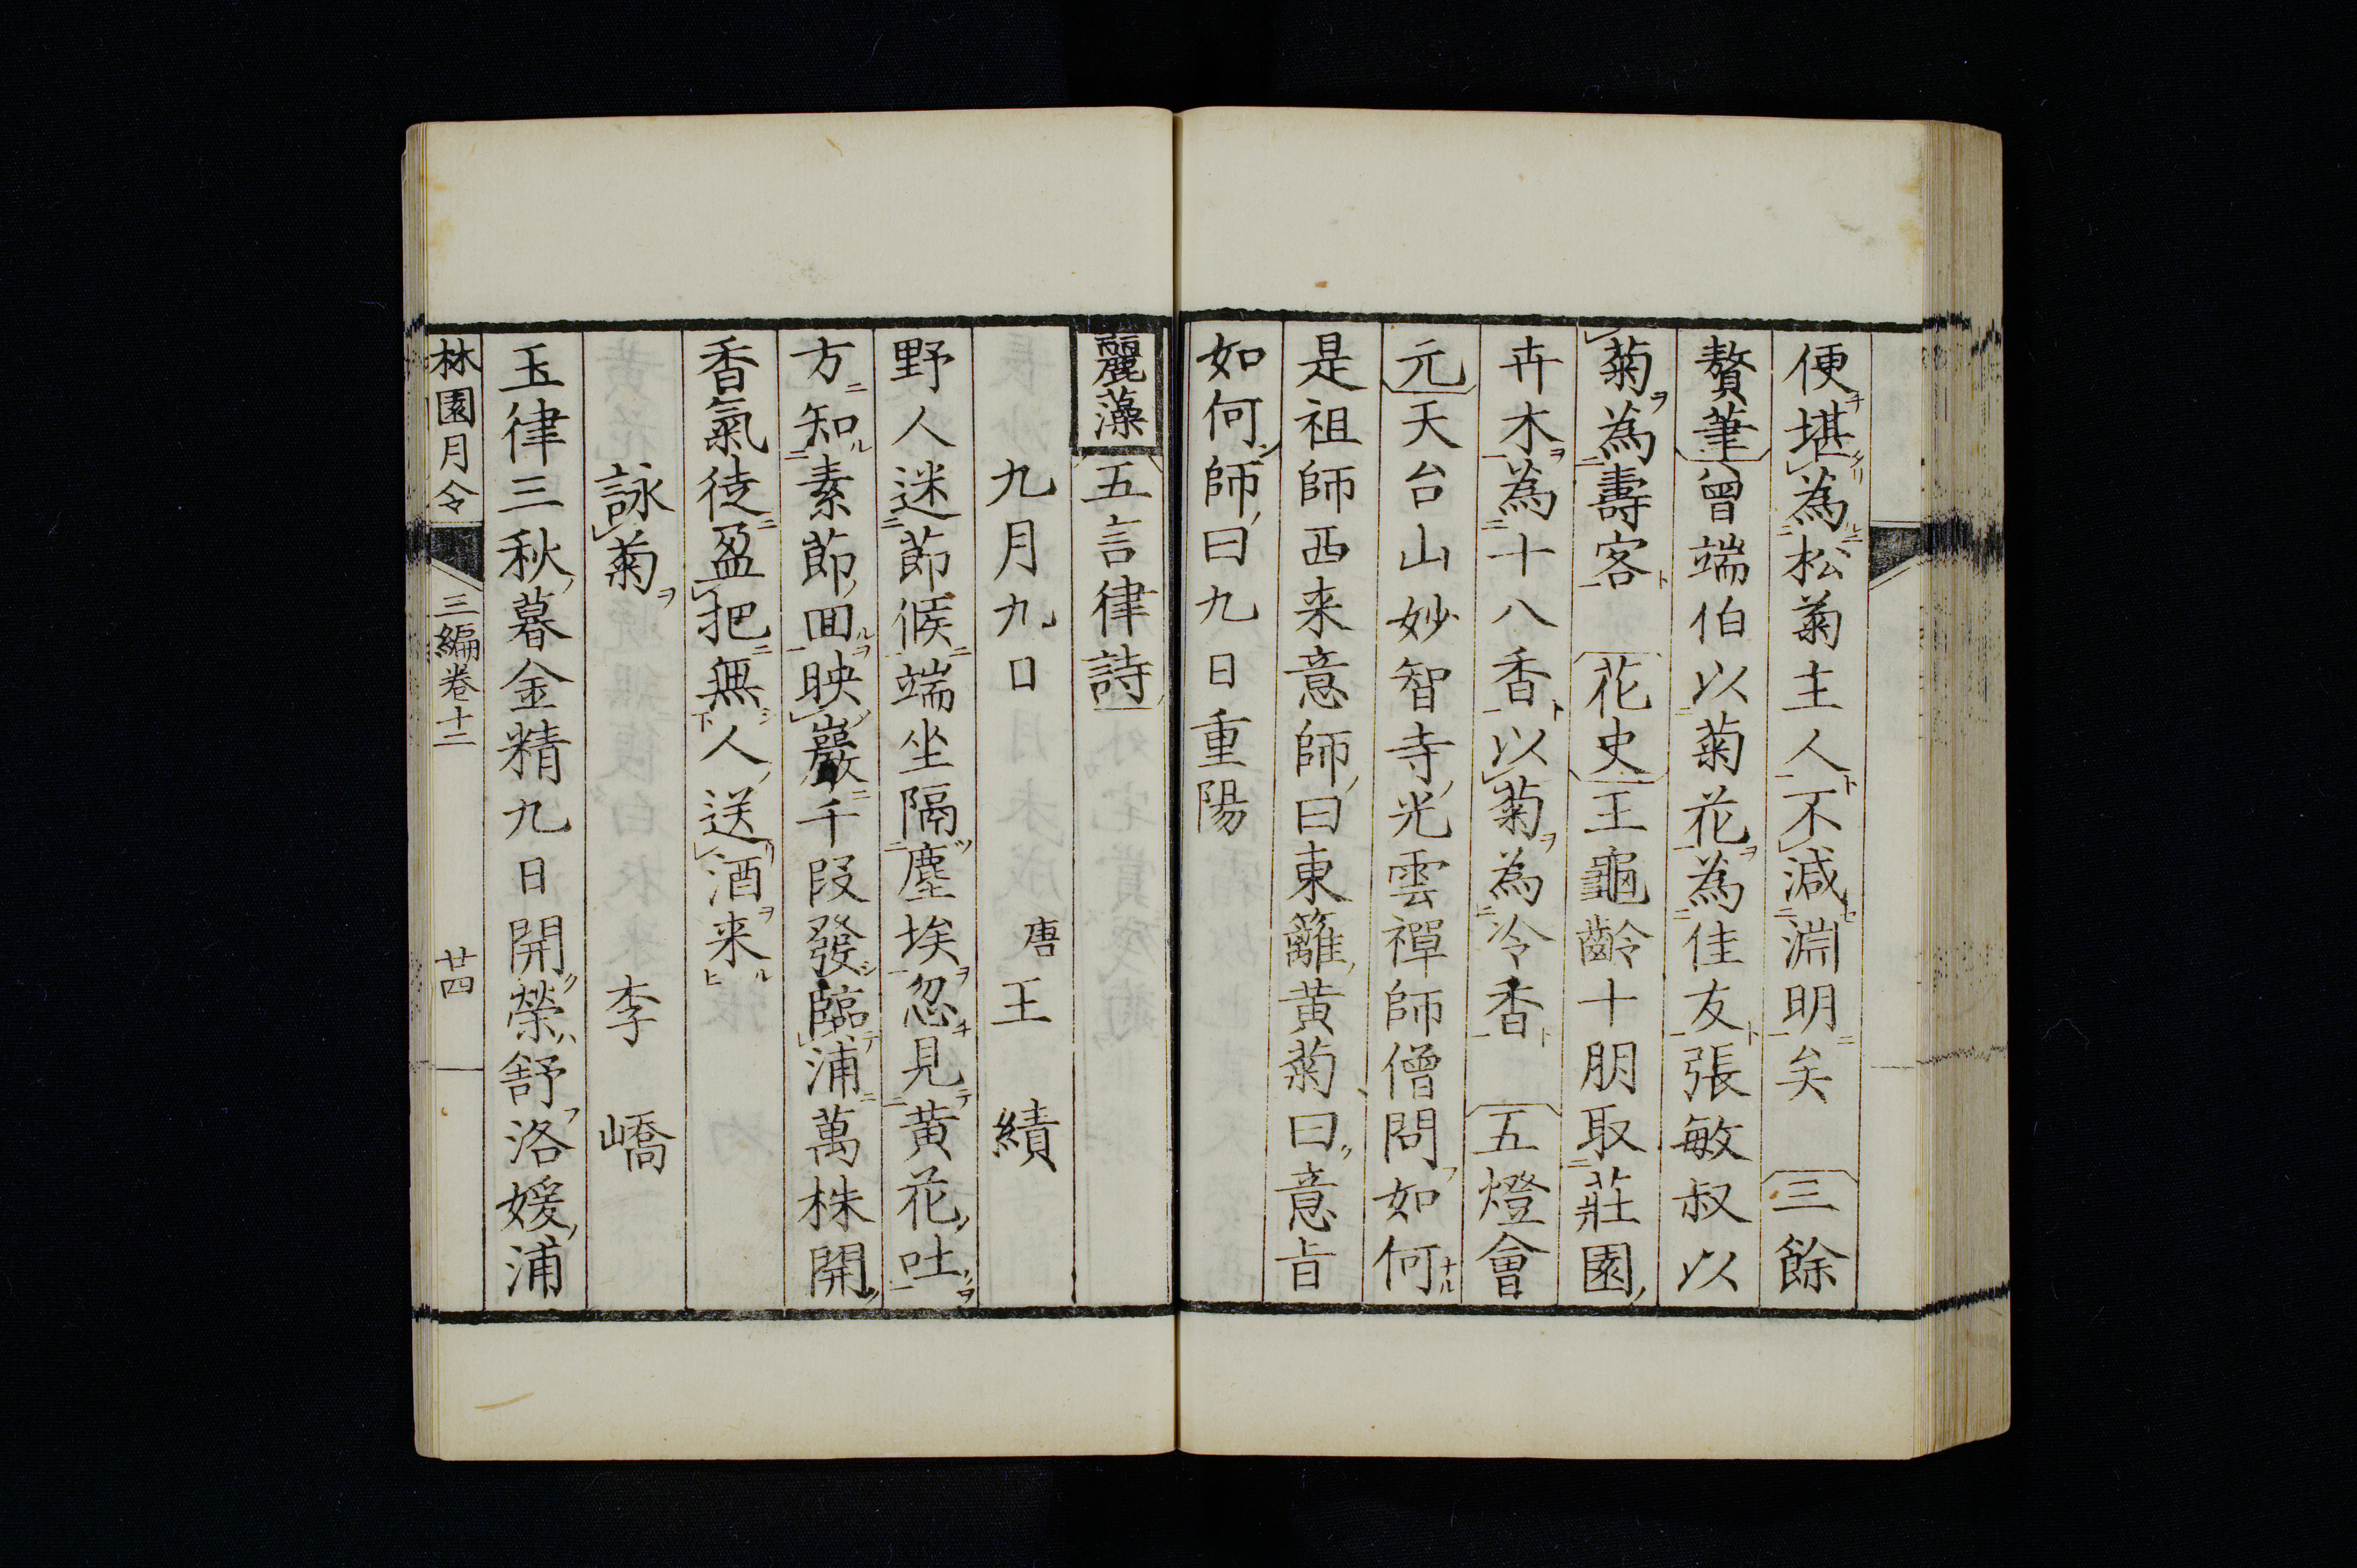 便堪為松菊主人不減淵明矣 三餘
贅筆曾端伯以菊花為佳友張敏叔以
菊為壽客 花史王龜齡十朋取莊園
卉木為十八香以菊為冷香 五燈會
元天台山妙智寺光雲禪師僧問如何
是祖師西来意師曰東籬黄菊曰意旨
如何師曰九日重陽
麗藻 五言律詩
九月九日 唐 王績
野人迷節候端坐隔塵埃忽見黄花吐
方知素節回映巖千段發臨浦萬株開
香氣徒盈把無人送酒来
詠菊 李嶠
玉律三秋暮金精九日開榮舒洛媛浦
林園月令 三編卷十二 廿四